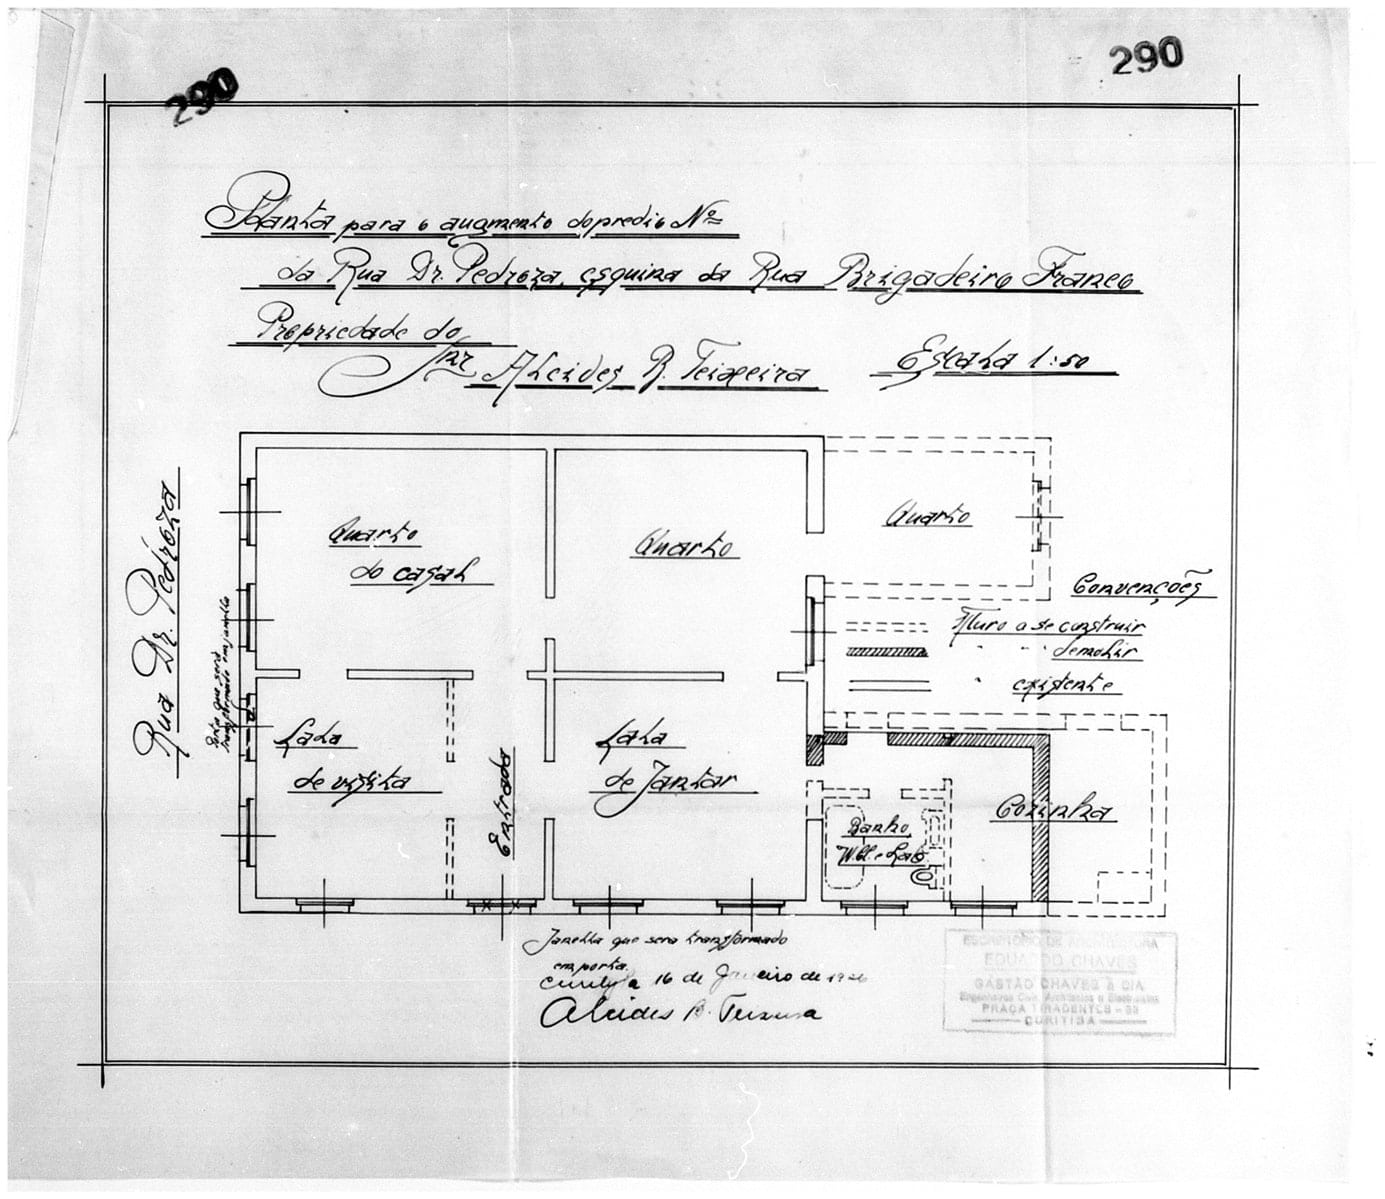 290
290
Planta para o augmento do predio Nº
da Rua Dr. Pedroza, esquina da Rua Brigadeiro Franco
Propriedade do
Snr Alcides B. Teixeira
Escala 1:50
Quarto
do casal
Quarto
Quarto
Convenções
Muro a se construir
" " " demolir
" existente
Rua Dr. Pedroza
Porta que será
transformada em janella
Sala
de visita
Entrada
Sala
de Jantar
Banho,
W.C. e Lab.
Cozinha
Janella que sera transformado
em porta.
Curityba 16 de Janeiro de 1926
Alcides B. Teixeira
ESCRITÓRIO DE ARCHITECTURA
EDUARDO CHAVES
GASTÃO CHAVES & CIA
Engenheiros Civis, Architectos e Electricistas
PRAÇA TIRADENTES -
CURITIBA